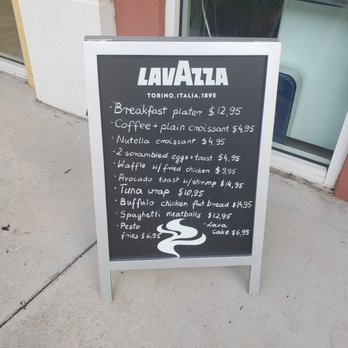 LAVAZZA
TORINO, ITALIA, 1895
· Breakfast plater $12,95
· Coffee + plain croissant $4,95
· Nutella croissant $4,95
· 2 scrambled eggs + toast $4,95
· Waffle w/ fried chicken $9,95
· Avocado toast w/shrimp $14,95
· Tuna wrap $10,95
· Buffalo chicken flat bread $14,95
· Spaghetti meatballs $12,95
· Pesto fries $6,95
· Lava cake $6,95